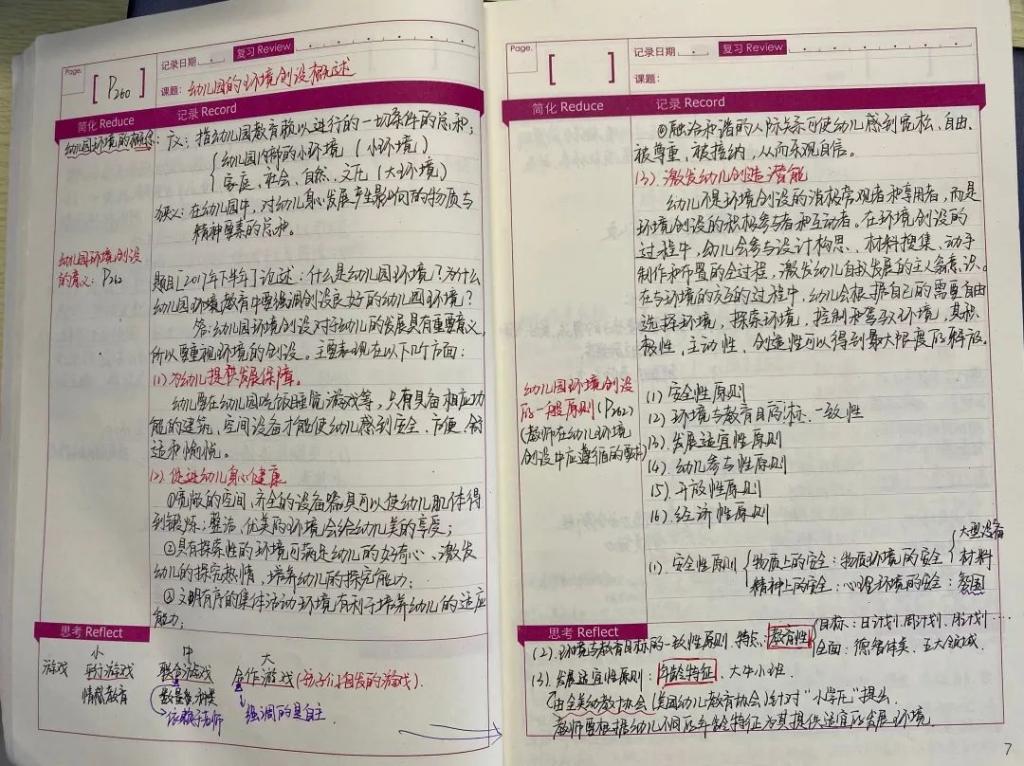 Page.
[ P260 ]
记录日期
复习 Review
课题: 幼儿园的环境创设概述
简化 Reduce
记录 Record
幼儿园环境的概念:
广义: 指幼儿园教育赖以进行的一切条件的总和;
幼儿园内部的小环境 (小环境)
家庭、社会、自然、文化 (大环境)
狭义: 在幼儿园中, 对幼儿身心发展产生影响的物质与
精神要素的总和。
幼儿园环境创设
的意义: P260
题目[2017年下半年]论述: 什么是幼儿园环境? 为什么
幼儿园环境教育中要强调创设良好的幼儿园环境?
答: 幼儿园环境创设对于幼儿的发展具有重要意义,
所以要重视环境的创设。主要表现在以下几个方面:
(1) 为幼儿提供发展保障。
幼儿要在幼儿园吃饭睡觉游戏等, 只有具备相应功
能的建筑、空间设备才能使幼儿感到安全、方便、舒
适和愉悦。
(2) 促进幼儿身心健康
①宽敞的空间、齐全的设备器具可以使幼儿肌体得
到锻炼; 整洁、优美的环境会给幼儿美的享受;
②具有探索性的环境可满足幼儿的好奇心、激发
幼儿的探究热情, 培养幼儿的探究能力;
③文明有序的集体活动环境有利于培养幼儿的适应
能力;
思考 Reflect
小 中 大
游戏 平行游戏 联合游戏 合作游戏 (孩子们自发的游戏).
情感教育
依赖于老师 强调的是自主
Page.
[ ]
记录日期
复习 Review
课题:
简化 Reduce
记录 Record
④融洽和谐的人际关系可使幼儿感到宽松、自由、
被尊重、被接纳, 从而乐观自信。
(3) 激发幼儿创造潜能
幼儿不是环境创设的消极旁观者和享用者, 而是
环境创设的积极参与者和互动者。在环境创设的
过程中, 幼儿会参与设计构思、材料搜集、动手
制作和布置的全过程, 激发幼儿自我发展的主人翁意识。
在与环境的交互的过程中, 幼儿会根据自己的需要自由
选择环境, 探索环境, 控制和驾驭环境, 其积
极性、主动性、创造性可以得到最大限度的解放。
幼儿园环境创设
的一般原则 (P262)
(教师在幼儿环境
创设中应遵循的要求)
(1) 安全性原则
(2) 环境与教育目标一致性
(3) 发展适宜性原则
(4) 幼儿参与性原则
(5) 开放性原则
(6) 经济性原则
(1). 安全性原则
物质上的安全: 物质环境的安全
大型设备
材料
精神上的安全: 心理环境的安全: 氛围
思考 Reflect
(2). 环境与教育目标的一致性原则. 特点: 教育性
目标: 日计划. 周计划. 月计划…
全面: 德智体美、五大领域
(3). 发展适宜性原则: 年龄特征、大中小班
由全美幼教协会(美国幼儿教育协会)针对“小学化”提出.
教师要根据幼儿不同的年龄特征为其提供适宜的发展环境.
7